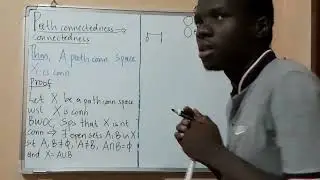 Path connectedness →
connectedness
Thm, A path conn space
X is conn
Proof
Let X be a path conn space
wst X is conn
BWOC, Sps that X is nt
conn ⇒ ∃ open sets A, B in X
st A, B ≠ ∅, A ≠ B, A∩B = ∅
and X = A∪B